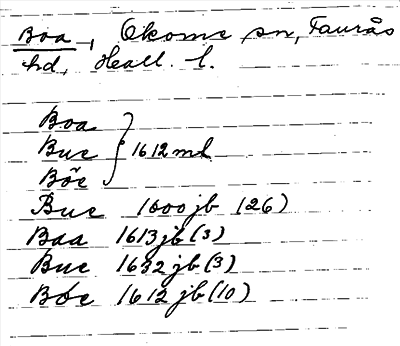 Boa, Okome sn, Faurås
hd, Hall. l.
Boa
Bue } 1612 ml
Böe
Bue 1600 jb (26)
Baa 1613 jb (3)
Bue 1632 jb (3)
Bóe 1612 jb (10)